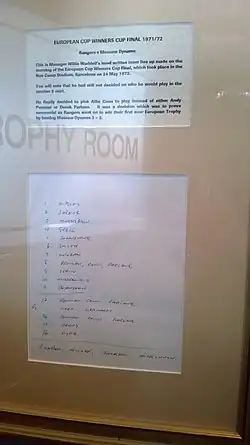 EUROPEAN CUP WINNERS CUP FINAL 1971/72
Rangers v Moscow Dynamo
This is Manager Willie Waddell's hand written team line up made on the
morning of the European Cup Winners Cup Final, which took place in the
Nou Camp Stadium, Barcelona on 24 May 1972.
You will note that he had still not decided on who he would play in the
number 6 shirt.
He finally decided to pick Alfie Conn to play instead of either Andy
Penman or Derek Parlane. It was a decision which was to prove
successful as Rangers went on to win their first ever European Trophy
by beating Moscow Dynamo 3 - 2.
TROPHY ROOM
1
2 JARDINE
3 MATHIESON
4 GREIG
5 JOHNSTONE
6 SMITH
7 McLEAN
8 PENMAN, CONN, PARLANE
9 STEIN
10 MACDONALD
11 JOHNSTON
12 PENMAN CONN PARLANE
14 PENMAN CONN PARLANE
15
16